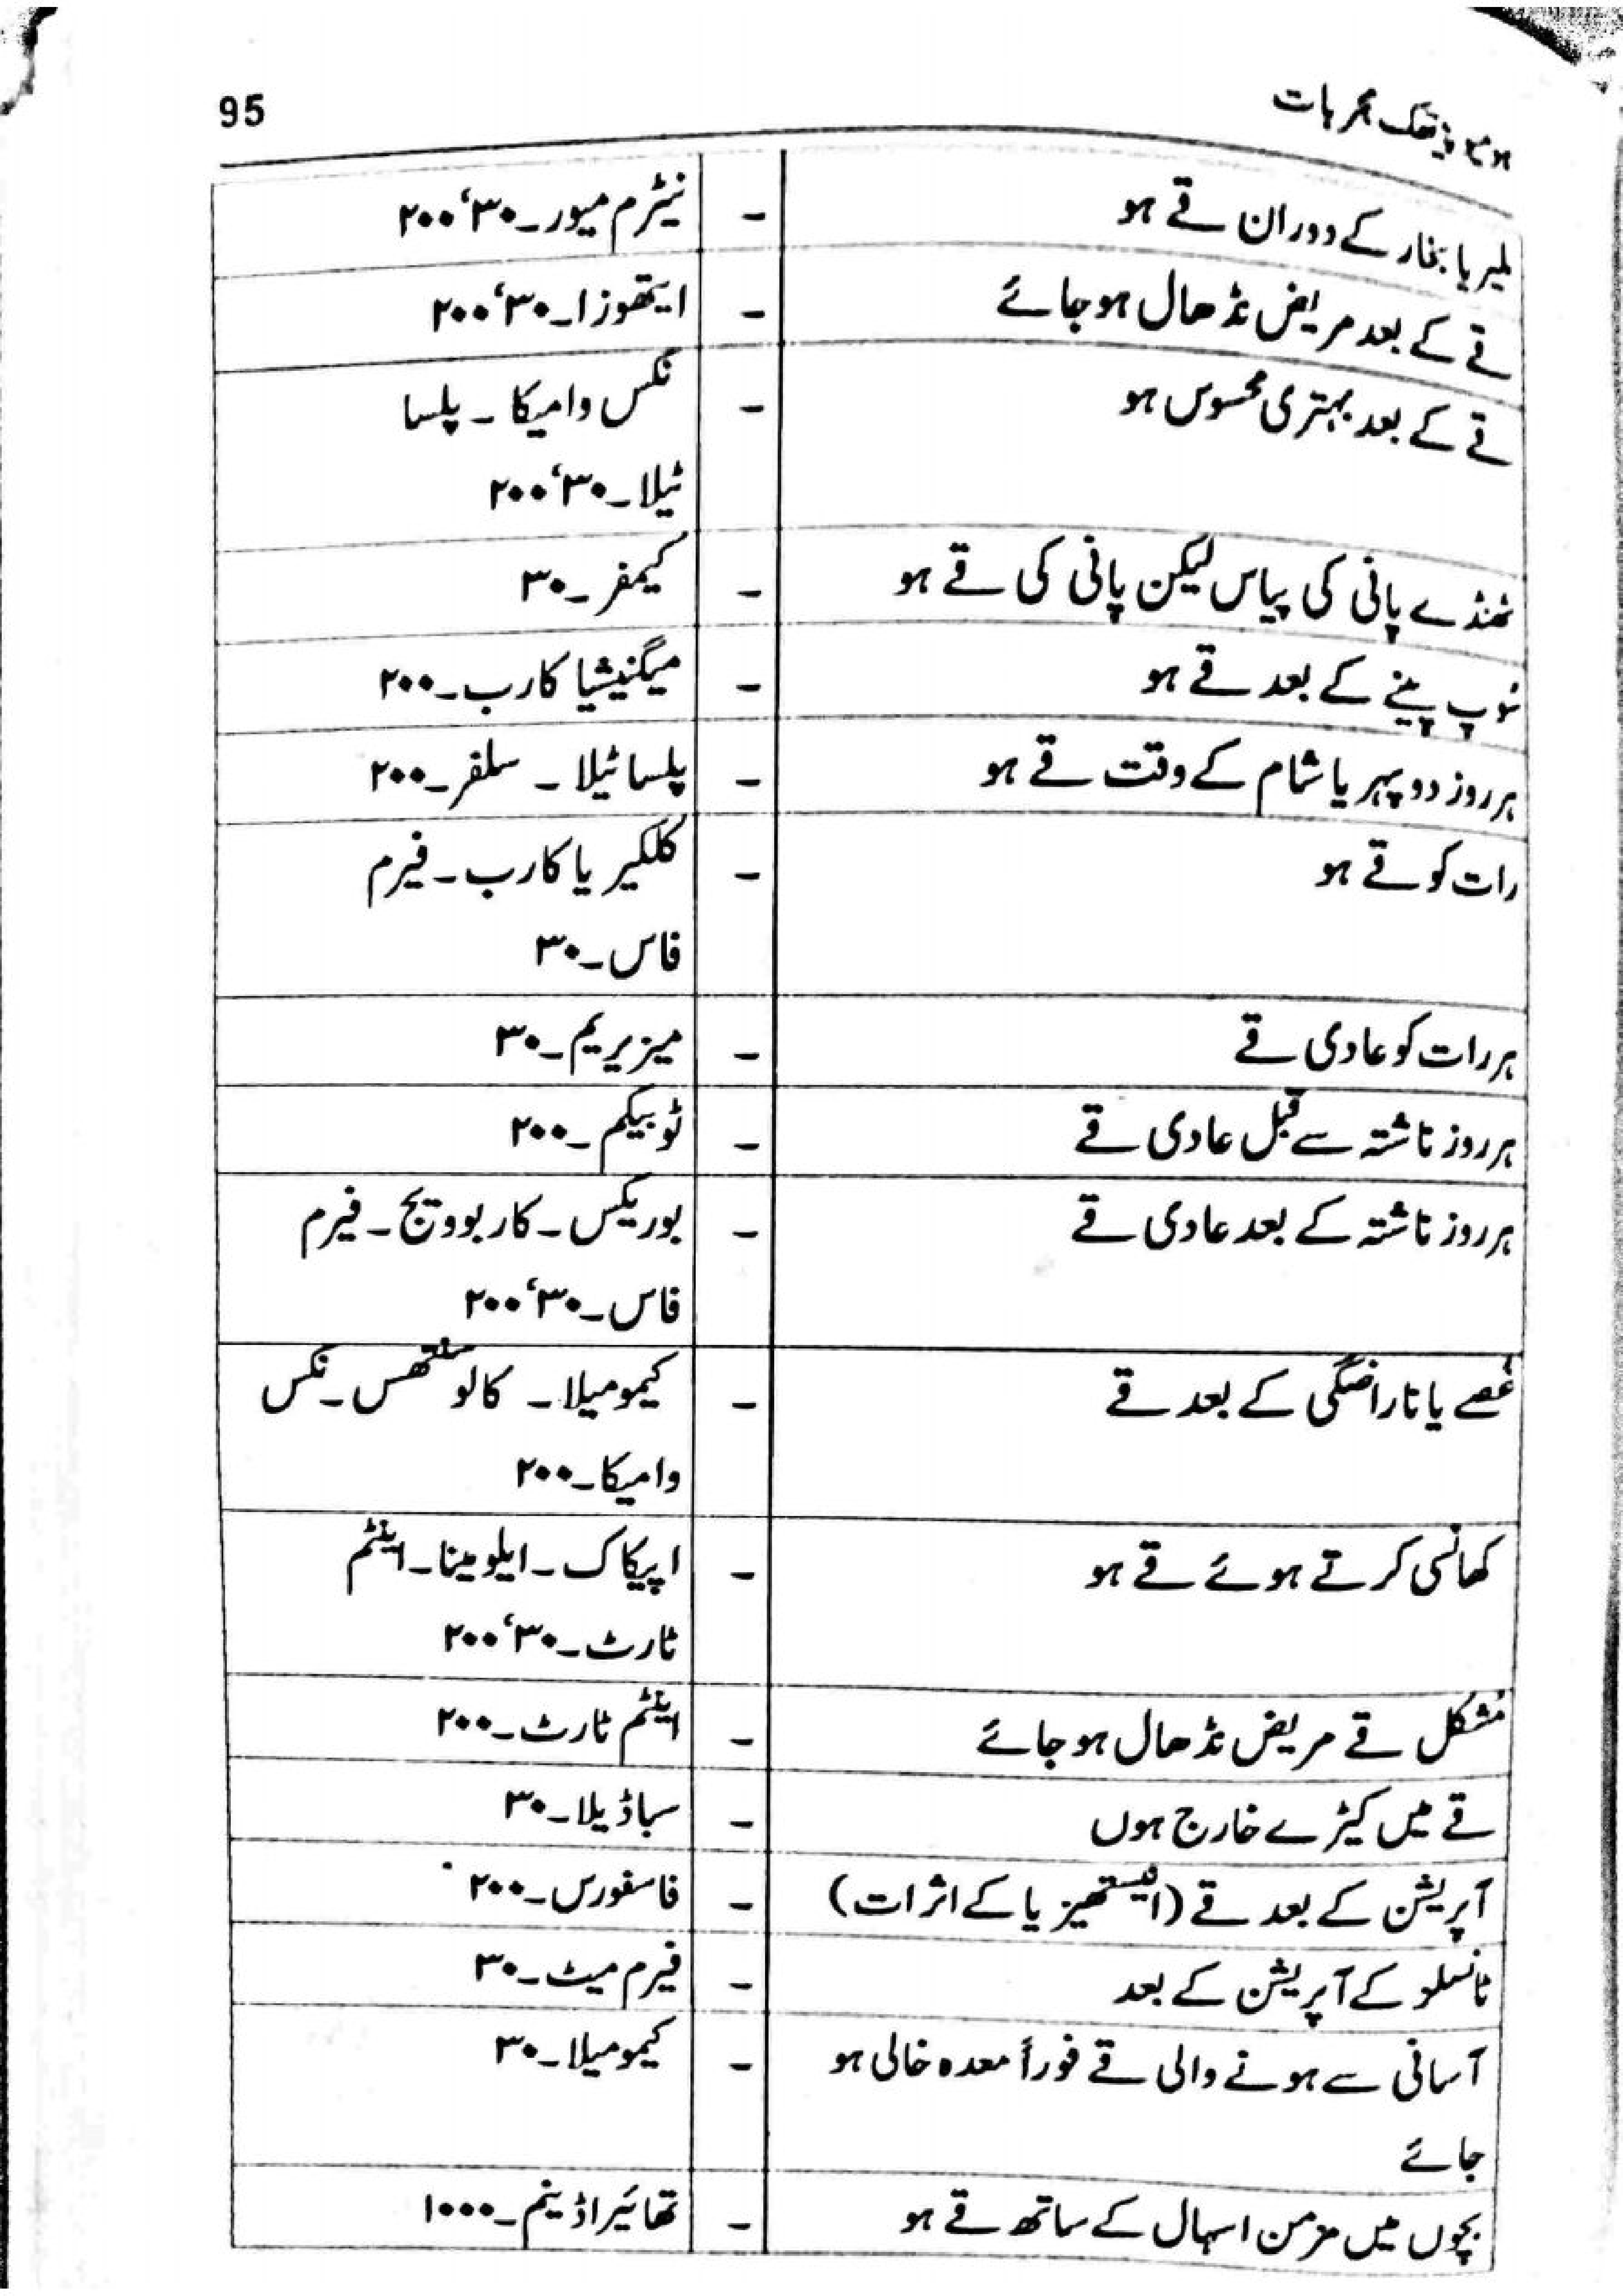 ہومیوپیتھک مجربات 95
ملیریا بخار کے دوران قے ہو - نیٹرم میور۔۳۰‘۲۰۰
قے کے بعد مریض نڈھال ہو جائے - ایتھوزا۔۳۰‘۲۰۰
قے کے بعد بہتری محسوس ہو - نکس وامیکا ۔ پلسا
ٹیلا۔۳۰‘۲۰۰
ٹھنڈے پانی کی پیاس لیکن پانی کی قے ہو - کیمفر۔۳۰
سُوپ پینے کے بعد قے ہو - میگنیشیا کارب۔۲۰۰
ہر روز دوپہر یا شام کے وقت قے ہو - پلسا ٹیلا ۔ سلفر۔۲۰۰
رات کو قے ہو - کلکیریا کارب۔فیرم
فاس۔۳۰
ہر رات کو عادی قے - میزیریم۔۳۰
ہر روز ناشتہ سے قبل عادی قے - ٹوبیکم۔۲۰۰
ہر روز ناشتہ کے بعد عادی قے - بوریکس۔کاربوویج۔فیرم
فاس۔۳۰‘۲۰۰
غُصے یا ناراضگی کے بعد قے - کیمومیلا۔ کالوسنتھس۔نکس
وامیکا۔۲۰۰
کھانسی کرتے ہوئے قے ہو - اپیکاک۔ایلومینا۔اینٹم
ٹارٹ۔۳۰‘۲۰۰
مُشکل قے مریض نڈھال ہو جائے - اینٹم ٹارٹ۔۲۰۰
قے میں کیڑے خارج ہوں - سباڈیلا۔۳۰
آپریشن کے بعد قے (انیستھیزیا کے اثرات) - فاسفورس۔۲۰۰
ٹانسلو کے آپریشن کے بعد - فیرم میٹ۔۳۰
آسانی سے ہونے والی قے فوراً معدہ خالی ہو - کیمومیلا۔۳۰
جائے
بچوں میں مزمن اسہال کے ساتھ قے ہو - تھائیراڈینم۔۱۰۰۰